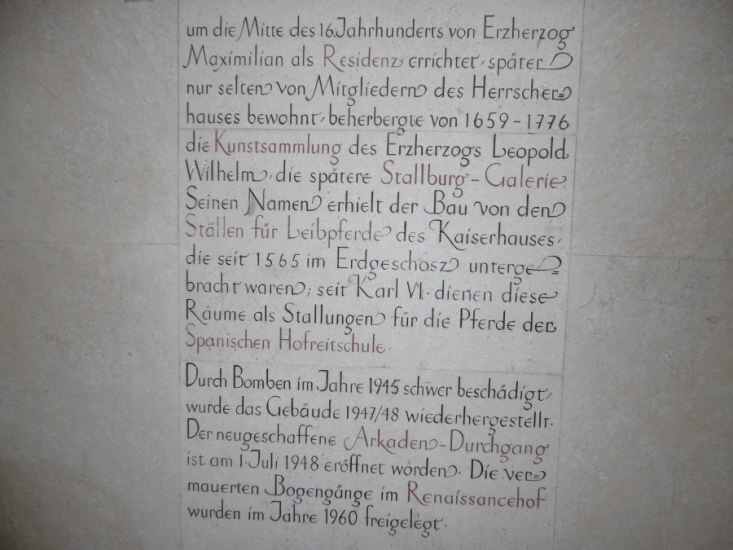 um die Mitte des 16.Jahrhunderts von Erzherzog
Maximilian als Residenz errichtet, später
nur selten von Mitgliedern des Herrscher=
hauses bewohnt, beherbergte von 1659-1776
die Kunstsammlung des Erzherzogs Leopold
Wilhelm, die spätere Stallburg-Galerie.
Seinen Namen erhielt der Bau von den
Ställen für Leibpferde des Kaiserhauses,
die seit 1565 im Erdgeschosz unterge=
bracht waren; seit Karl VI. dienen diese
Räume als Stallungen für die Pferde der
Spanischen Hofreitschule.
Durch Bomben im Jahre 1945 schwer beschädigt,
wurde das Gebäude 1947/48 wiederhergestellt.
Der neugeschaffene Arkaden-Durchgang
ist am 1.Juli 1948 eröffnet worden. Die ver=
mauerten Bogengänge im Renaissancehof
wurden im Jahre 1960 freigelegt.